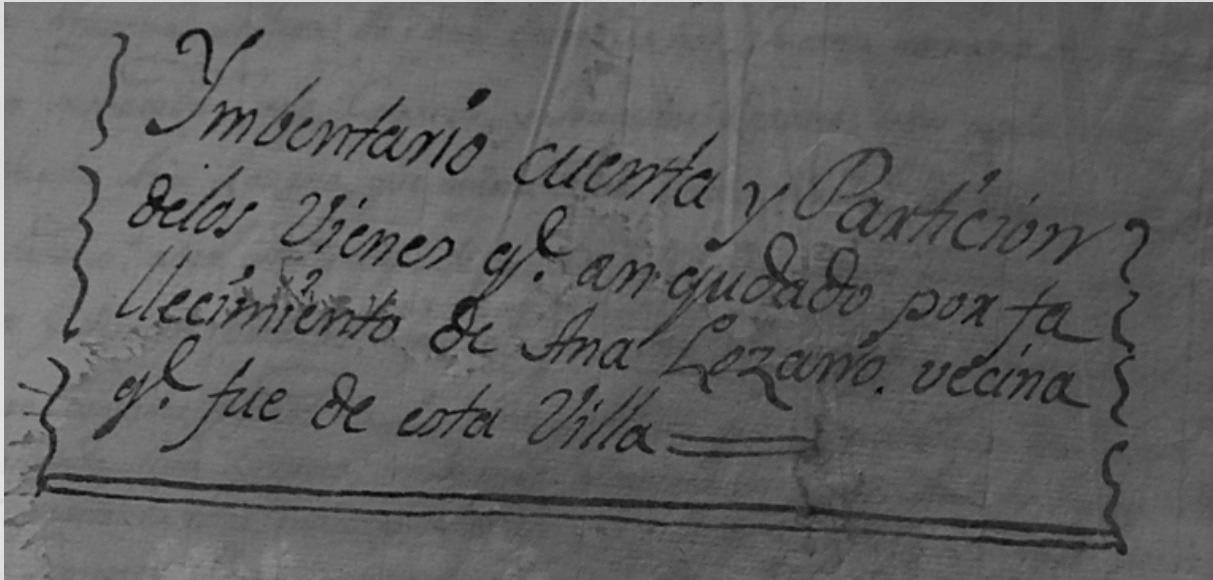 Ymbentario cuenta y Partición
delos Vienes q.e an qudado por fa
llecimiento de Ana Lozano. vecina
q.e fue de esta Villa